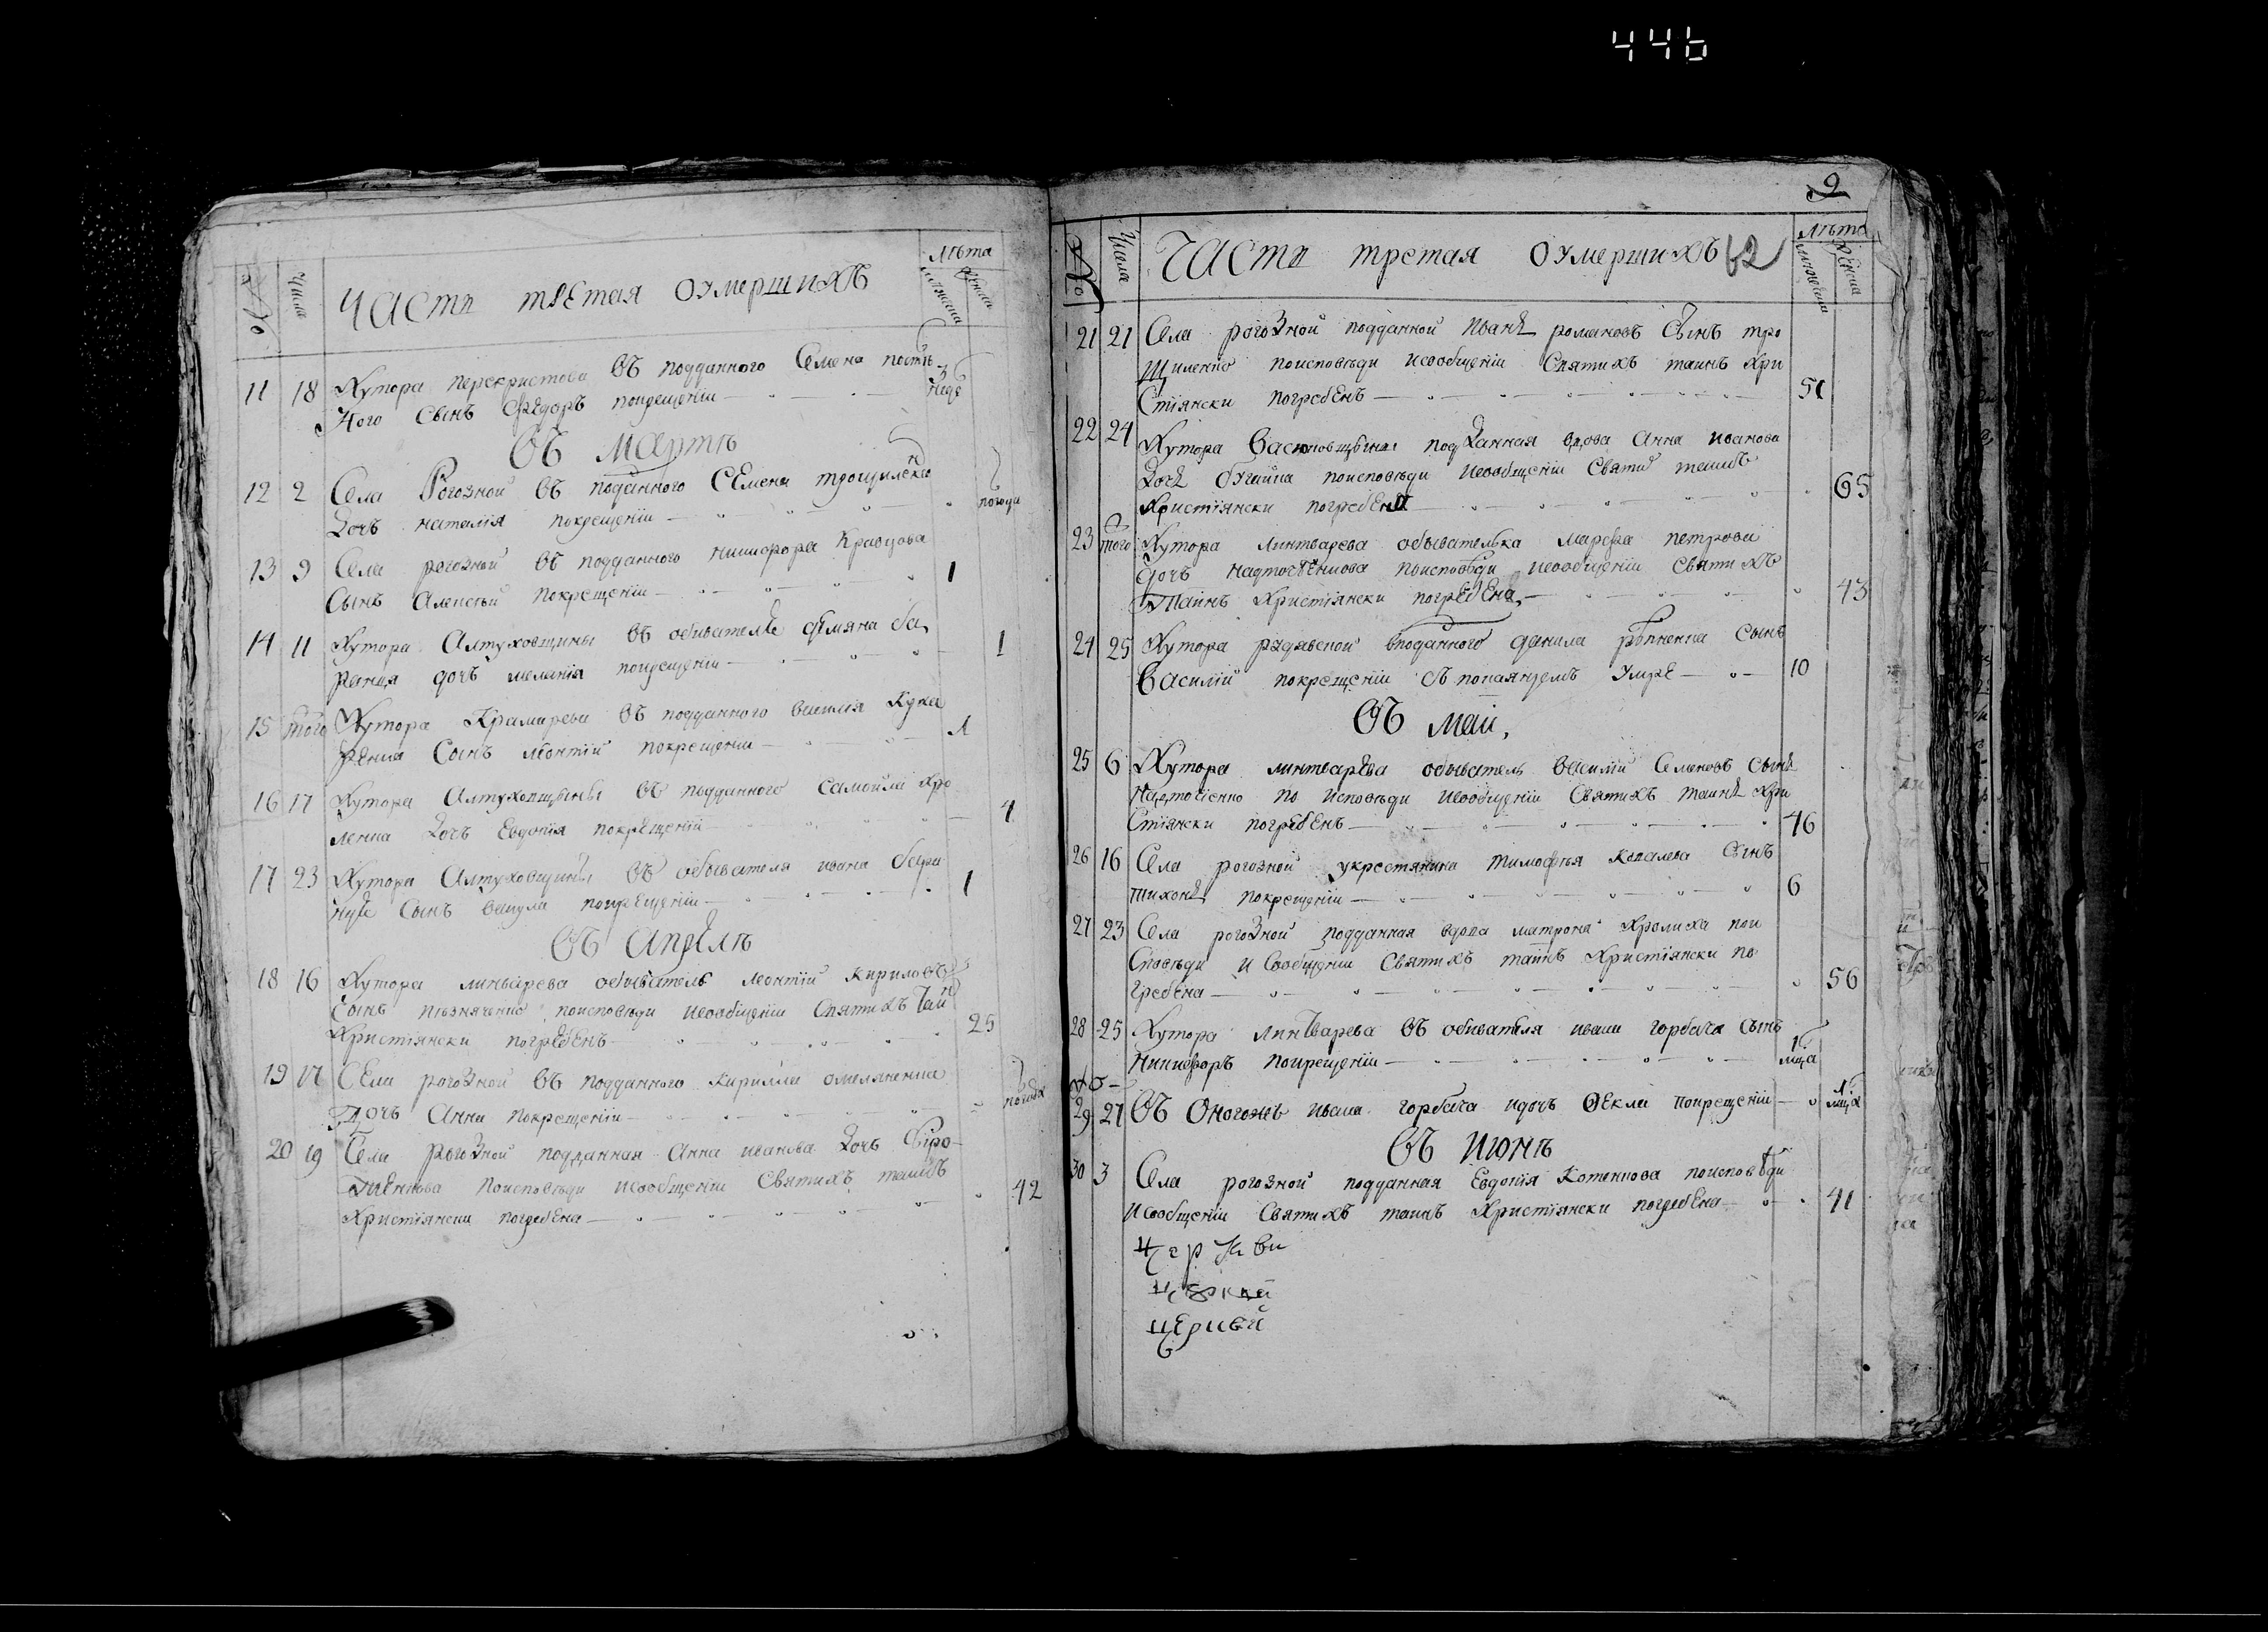 446
№ Числа Часть третая оумершихъ Лѣта
мужеска женска
11 18 Хутора перекристова въ подданного Семена постъ
ного сынъ Федоръ покрещеніи 3 неде
въ мартѣ
12 2 Села Рогозной въ поданного Семена трощиленко
дочь наталія покрещеніи полгода
13 9 Села рогозной въ подданного никифора Кравцова
Сынъ Алексѣй покрещеніи 1
14 11 Хутора Алтуховщины въ обивателѣ демяна ба
ранця дочъ меланія покрещеніи 1
15 того Хутора Крамарева въ подданного василия Кука
ренка Сынъ леонтій покрещеніи 1
16 17 Хутора Алтуховщыны въ подданного самойла хро
ленка дочъ Евдокія покрещеніи 1
17 23 Хутора Алтуховщины въ обывателя ивана бара
нця Сынъ вакула покрещеніи 1
въ Апрелѣ
18 16 Хутора линтварева обыватель леонтій кириловъ
Сынъ поисповѣди исообщеніи Святихъ таи
Христіянски погребенъ 25
19 17 Села рогозной въ подданного кирилла омеляненка
дочь Анна покрещеніи полгода
20 19 Села рогозной подданная Анна иванова дочъ Сиро
тиенкова поисповѣди исообщеніи Святихъ таинъ
Христіянски погребена 42
9
№ Числа Часть третая оумершихъ 62 Лѣта
мужеска женска
21 21 Села рогозной подданной Иванъ романовъ Сынъ тро
щиленко поисповѣди исообщеніи Святихъ таинъ хри
стіянски погребенъ 51
22 24 Хутора Васюковщыны подданная вдова Анна иванова
дочъ поисповѣди исообщеніи Святи таинъ
Христіянски погребена 65
23 того Хутора линтварева обывателка марфа петрова
дочъ надточіенкова поисповѣди исообщеніи Святихъ
Таинъ Христіянски погребена 43
24 25 Хутора радявской вподданного данила рѣпненка сынъ
Василій покрещеніи съ покаяніемъ умре 10
въ маи,
25 6 Хутора линтварева обыватель василій Семеновъ сынъ
Надточіенко по исповѣди исообщеніи Святихъ таинъ хри
Стіянски погребенъ 46
26 16 Села рогозной укрестянина тимофѣя ковалева Сынъ
тихонъ покрещеніи 6
27 23 Села рогозной подданная вдова матрона Хролиха пои
сповѣди и Сообщеніи Святихъ таинъ Христіянски по
гребена 56
28 25 Хутора линтварева въ обивателя ивана горбача сынъ
Никифоръ покрещеніи 1 мца
29 27 Въ Оногожъ ивана горбача идочъ Фекла покрещеніи 1 мца
въ июнѣ
30 3 Села рогозной подданная Евдокія Котенкова поисповѣди
исообщеніи Святихъ таинъ Христіянски погребена 41
церкви